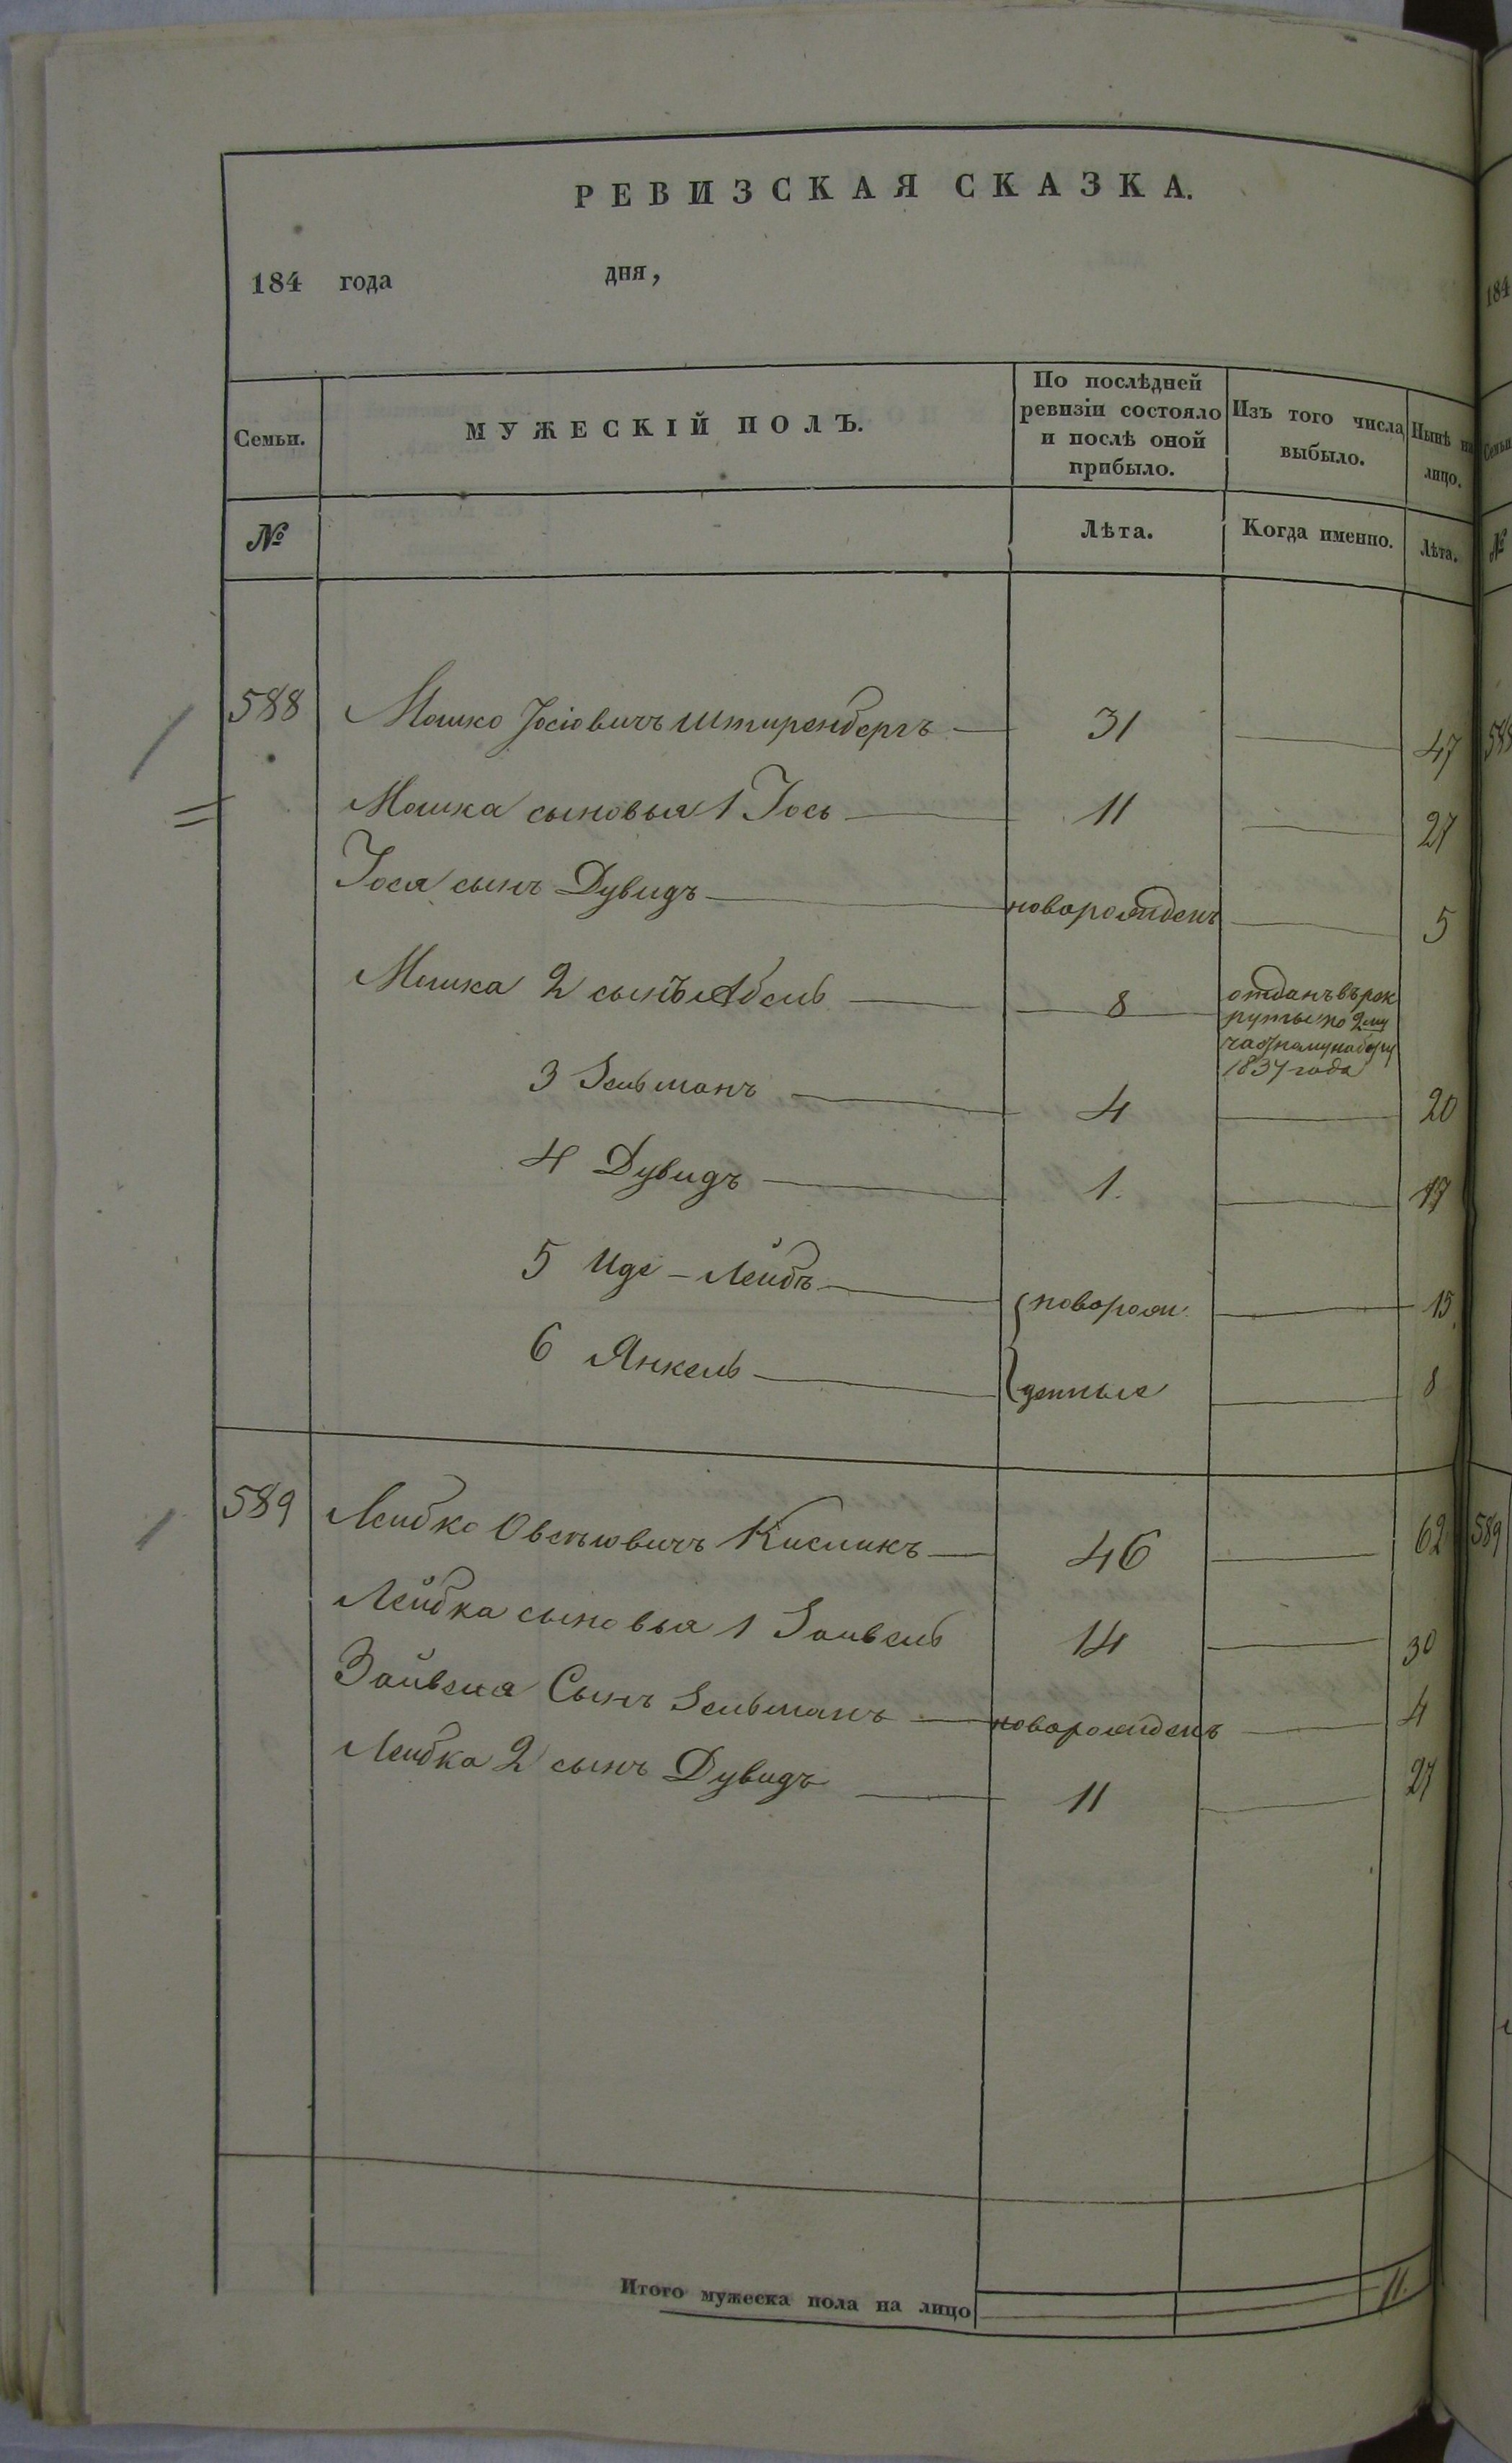 РЕВИЗСКАЯ СКАЗКА.
184 года дня,
Семьи. МУЖЕСКІЙ ПОЛЪ. По послѣдней ревизіи состояло и послѣ оной прибыло. Изъ того числа выбыло. Нынѣ на лицо.
№ Лѣта. Когда именно. Лѣта.
588 Мошко Іосіовичъ Штиренбергъ 31 47
Мошка сыновья 1 Іось 11 27
Іося сынъ Дувидъ новорожденъ 5
Мошка 2 сынъ Абель 8 отданъ въ рек
руты по 2му
частному набору
1837 года
3 Зельманъ 4 20
4 Дувидъ 1. 17
5 Иде-Лейбъ новорож 15
6 Янкель денные 8
589 Лейбко Кисликъ 46 62
Лейбка сыновья 1 Зайвель 14 30
Зайвеля Сынъ Зельманъ новорожденъ 4
Лейбка 2 сынъ Дувидъ 11 27
Итого мужеска пола на лицо 11.
184
Семьи
№
588
589